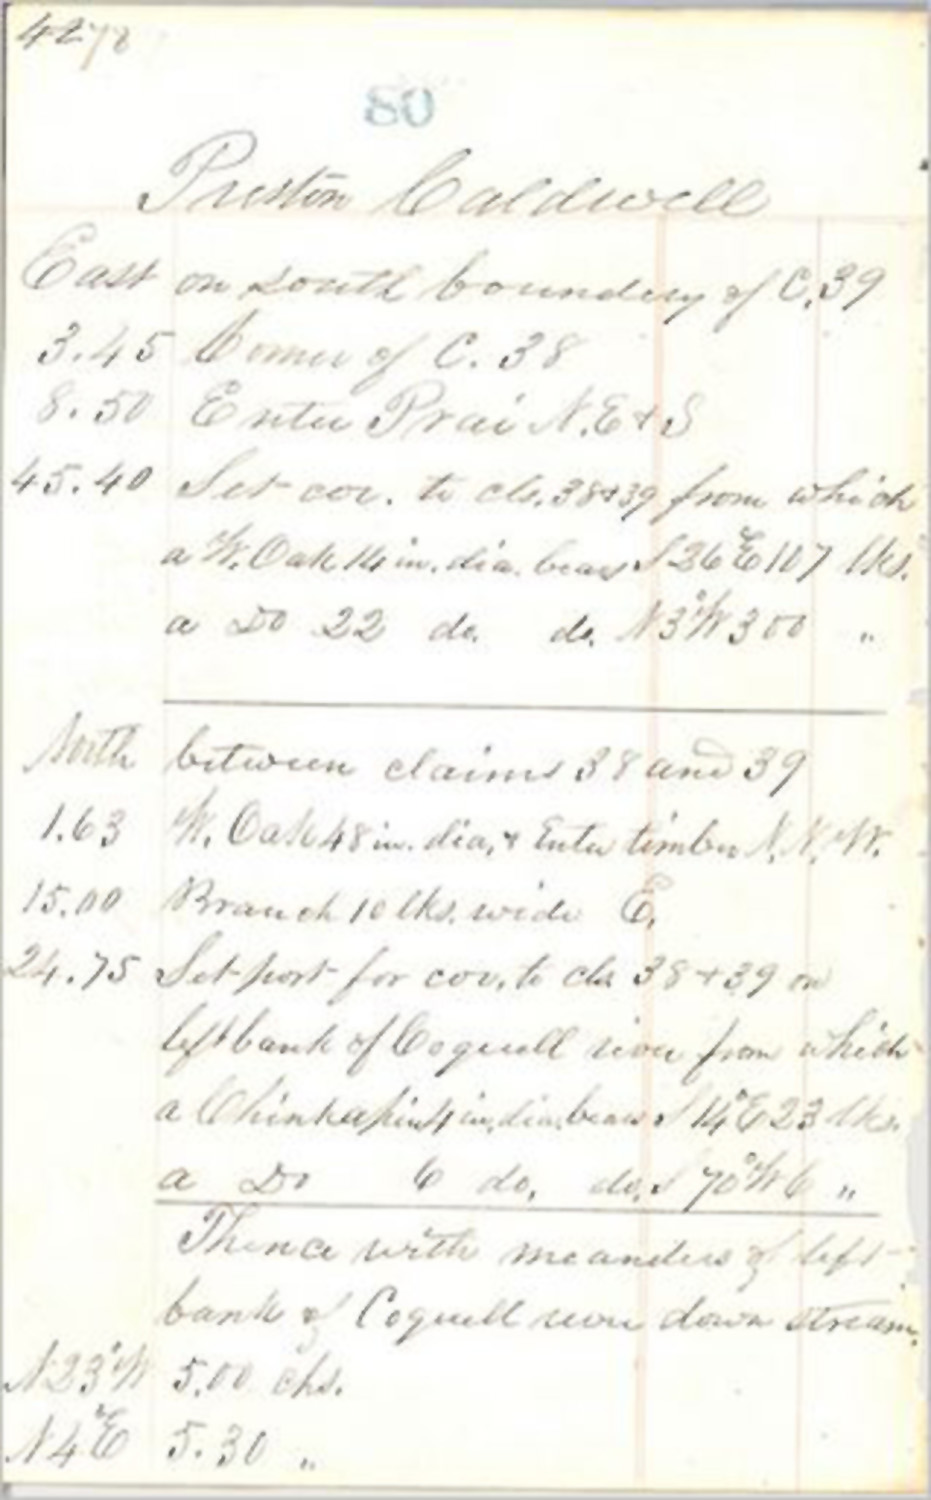 4278
80
Preston Caldwell
East on south boundary of C. 39
3.45 Corner of C. 38
8.50 Enter Prai N. E + S
45.40 Set cor. to cls. 38 + 39 from which
a W. Oak 14 in. dia. bears S 26° E 107 lks.
a Do 22 do. do. N 3° W 300 "
North between claims 38 and 39
1.63 W. Oak 48 in. dia. & Enter timber N. N. W.
15.00 Branch 10 lks. wide E.
24.75 Set post for cor. to cls 38 + 39 on
left bank of Coquell river from which
a Chinkapin 4 in. dia. bears S 14° E 23 lks.
a Do 6 do. do. S 70° W 6 "
Thence with meanders of left
bank of Coquell river down stream.
N 23° W 5.00 chs.
N 4° E 5.30 "